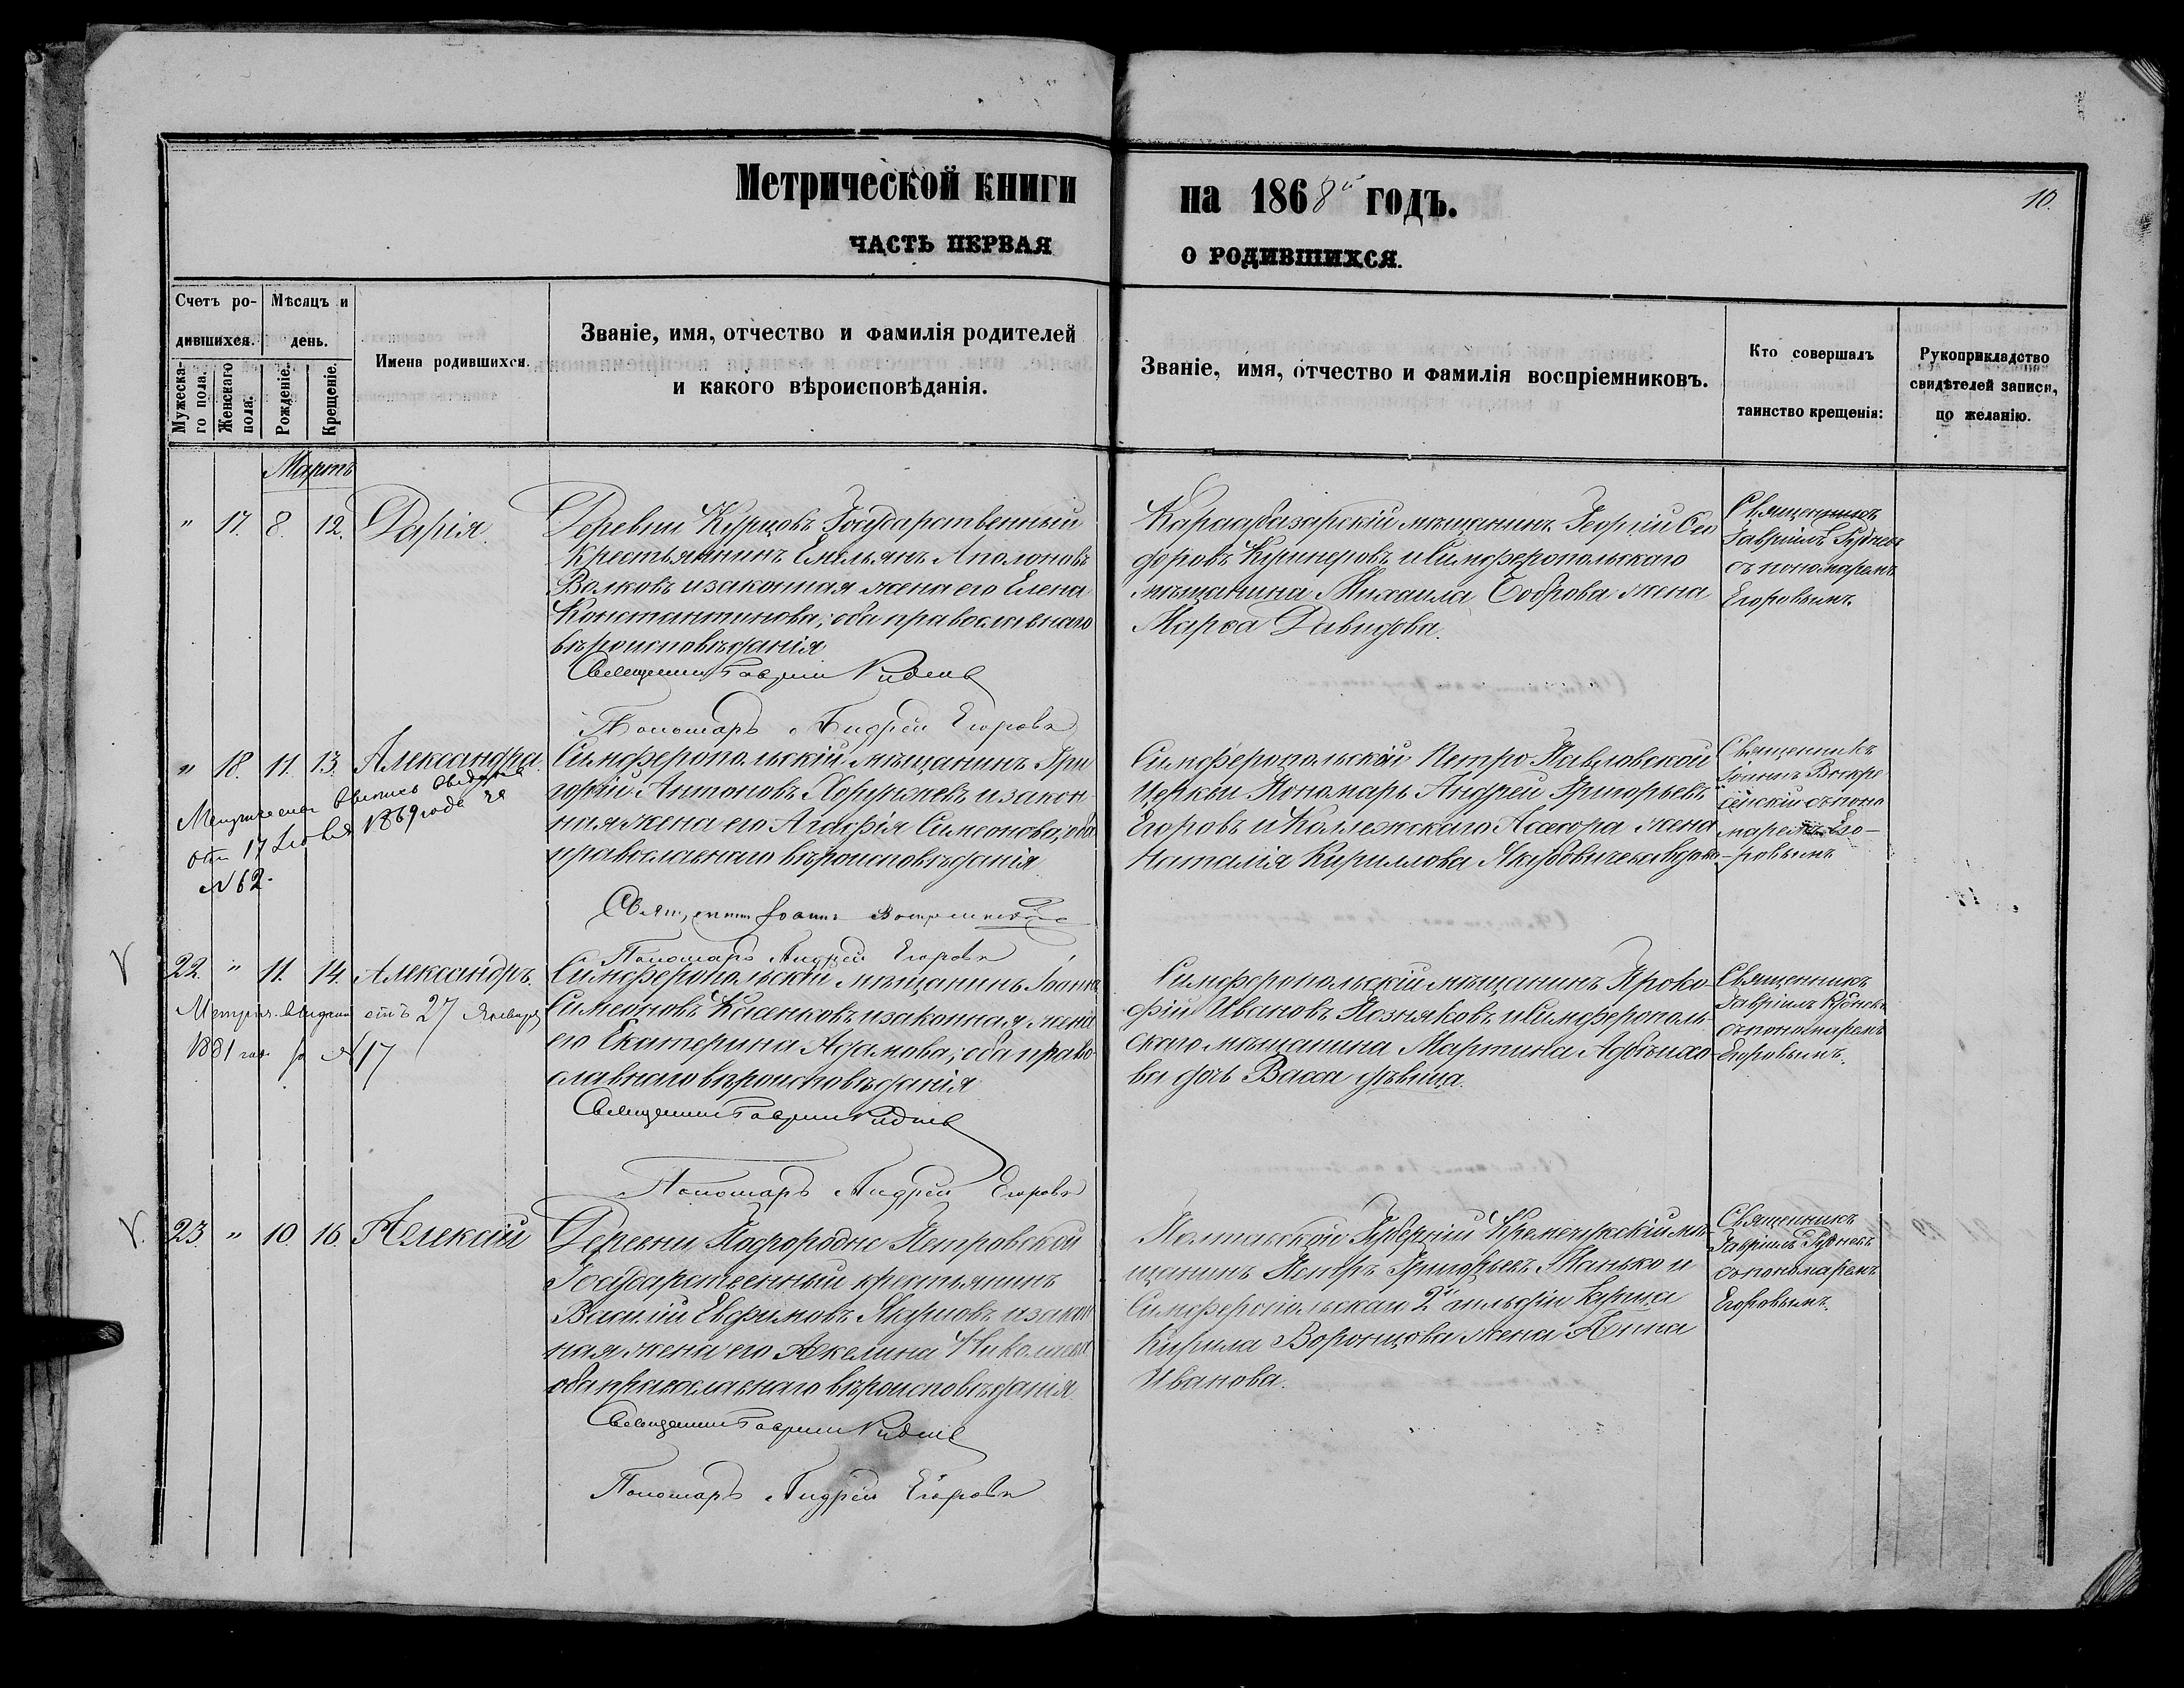 Метрической книги
на 1868й годъ.
10.
ЧАСТЬ ПЕРВАЯ
О РОДИВШИХСЯ.
Счетъ ро-
дившихся.
Мѣсяцъ и
день.
Мужеска-
го пола.
Женскаго
пола.
Рожденіе.
Крещеніе.
Имена родившихся.
Званіе, имя, отчество и фамилія родителей
и какого вѣроисповѣданія.
Званіе, имя, отчество и фамилія воспріемниковъ.
Кто совершалъ
таинство крещенія:
Рукоприкладство
свидѣтелей записи,
по желанію.
Мартъ
" 17. 8. 12. Дарія.
Деревни Курцовъ Государственный
крестьянинъ Емельянъ Аполоновъ
Волковъ и законная жена его Елена
Константинова; оба православнаго
вѣроисповѣданія
Священникъ Гавріилъ Руднев
Пономарь Андрей Егоровъ
Карасубазарскій мѣщанинъ Георгій Си
доровъ и Симферопольскаго
мѣщанина Михаила Боброва жена
Марѳа Давидова.
Священникъ
Гавріилъ Рудневъ
съ пономаремъ
Егоровымъ.
" 18. 11. 13. Александра.
от 17 1869 года за
№ 62.
Симферопольскій мѣщанинъ Гри
горій Антоновъ и закон
ная жена его Агафія Симеонова; оба
православнаго вѣроисповѣданія.
Священникъ Іоаннъ
Пономарь Андрей Егоровъ
Симферопольской Петро-Павловской
Церкви Пономарь Андрей Григорьевъ
Егоровъ и Коллежскаго Асесора жена
Наталія Кириллова вдова
Священникъ
Іоаннъ Воскре
сенскій съ поно
маремъ Его-
ровымъ
22. " 11. 14. Александръ.
Метрич. отъ 27 Января
1881 год за № 17
Симферопольскій мѣщанинъ Іоаннъ
Симеоновъ и законная жена
его Екатерина Адамова; оба право
славнаго вѣроисповѣданія
Священникъ Гавріилъ Руднев
Пономарь Андрей Егоровъ
Симферопольскій мѣщанинъ Проко
фій Ивановъ Позняковъ и Симферополь
скаго мѣщанина Мартина
ва дочь Васса дѣвица.
Священникъ
Гавріилъ Рудневъ
съ пономаремъ
Егоровымъ.
23. " 10. 16. Алексій
Деревни Петровской
Государственный крестьянинъ
Василій Евфимовъ и закон
ная жена его Акелина Николаева
оба православнаго вѣроисповѣданія
Священникъ Гавріилъ Руднев
Пономарь Андрей Егоровъ
Полтавской Губерніи Кременчужскій мѣ-
щанинъ Петръ Григорьевъ и
Симферопольскаго 2й гильдіи купца
Кирила Воронцова жена Анна
Иванова.
Священникъ
Гавріилъ Рудневъ
съ пономаремъ
Егоровымъ.